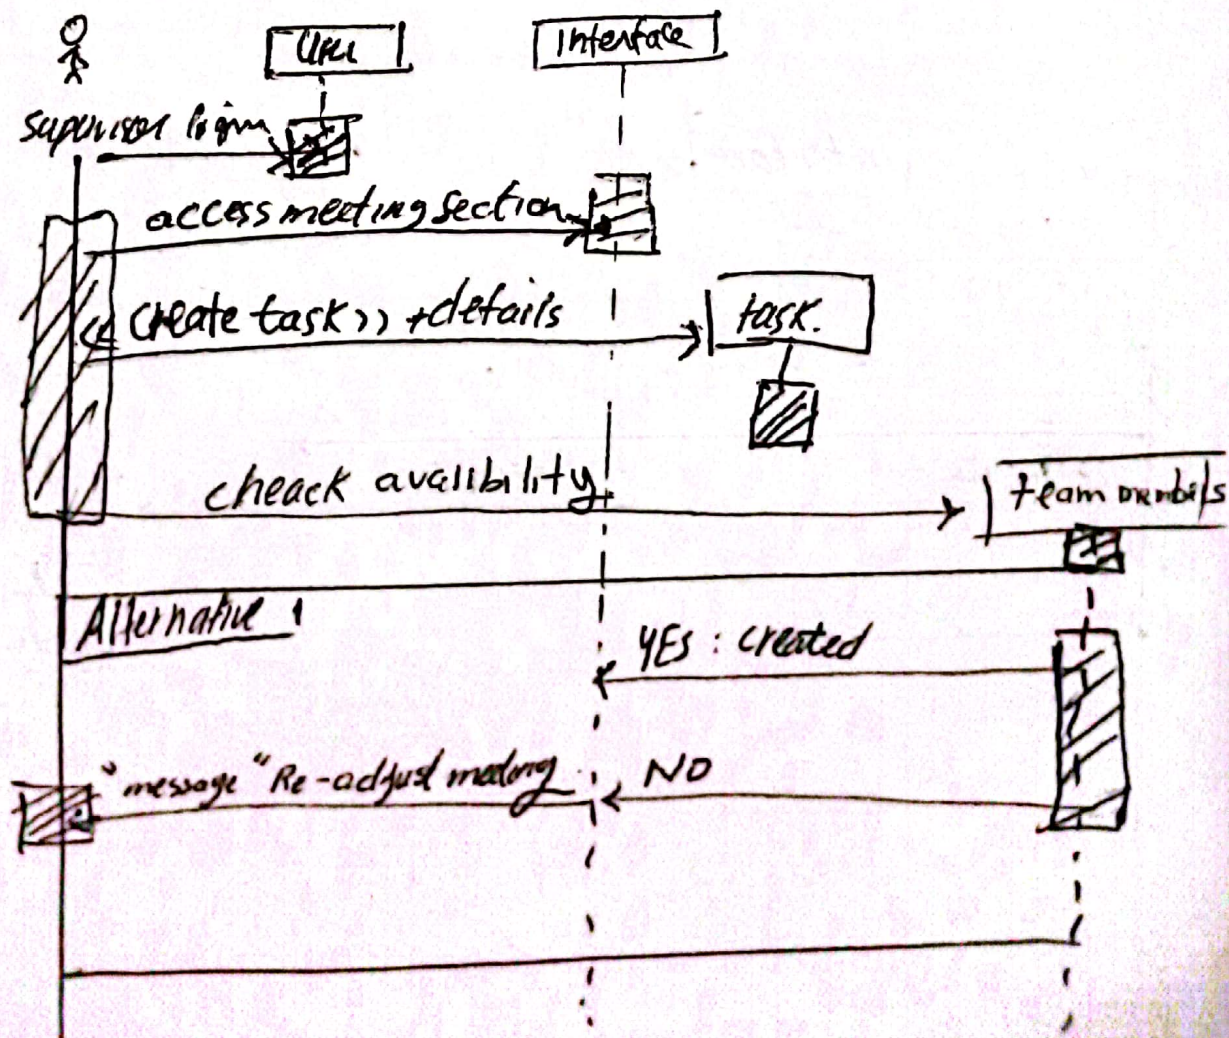 User
Interface
supervisor login
access meeting section
<< create task >> + details
task.
cheack avalibility
team
Alternative
YES : created
"message" Re-adjust meeting
NO